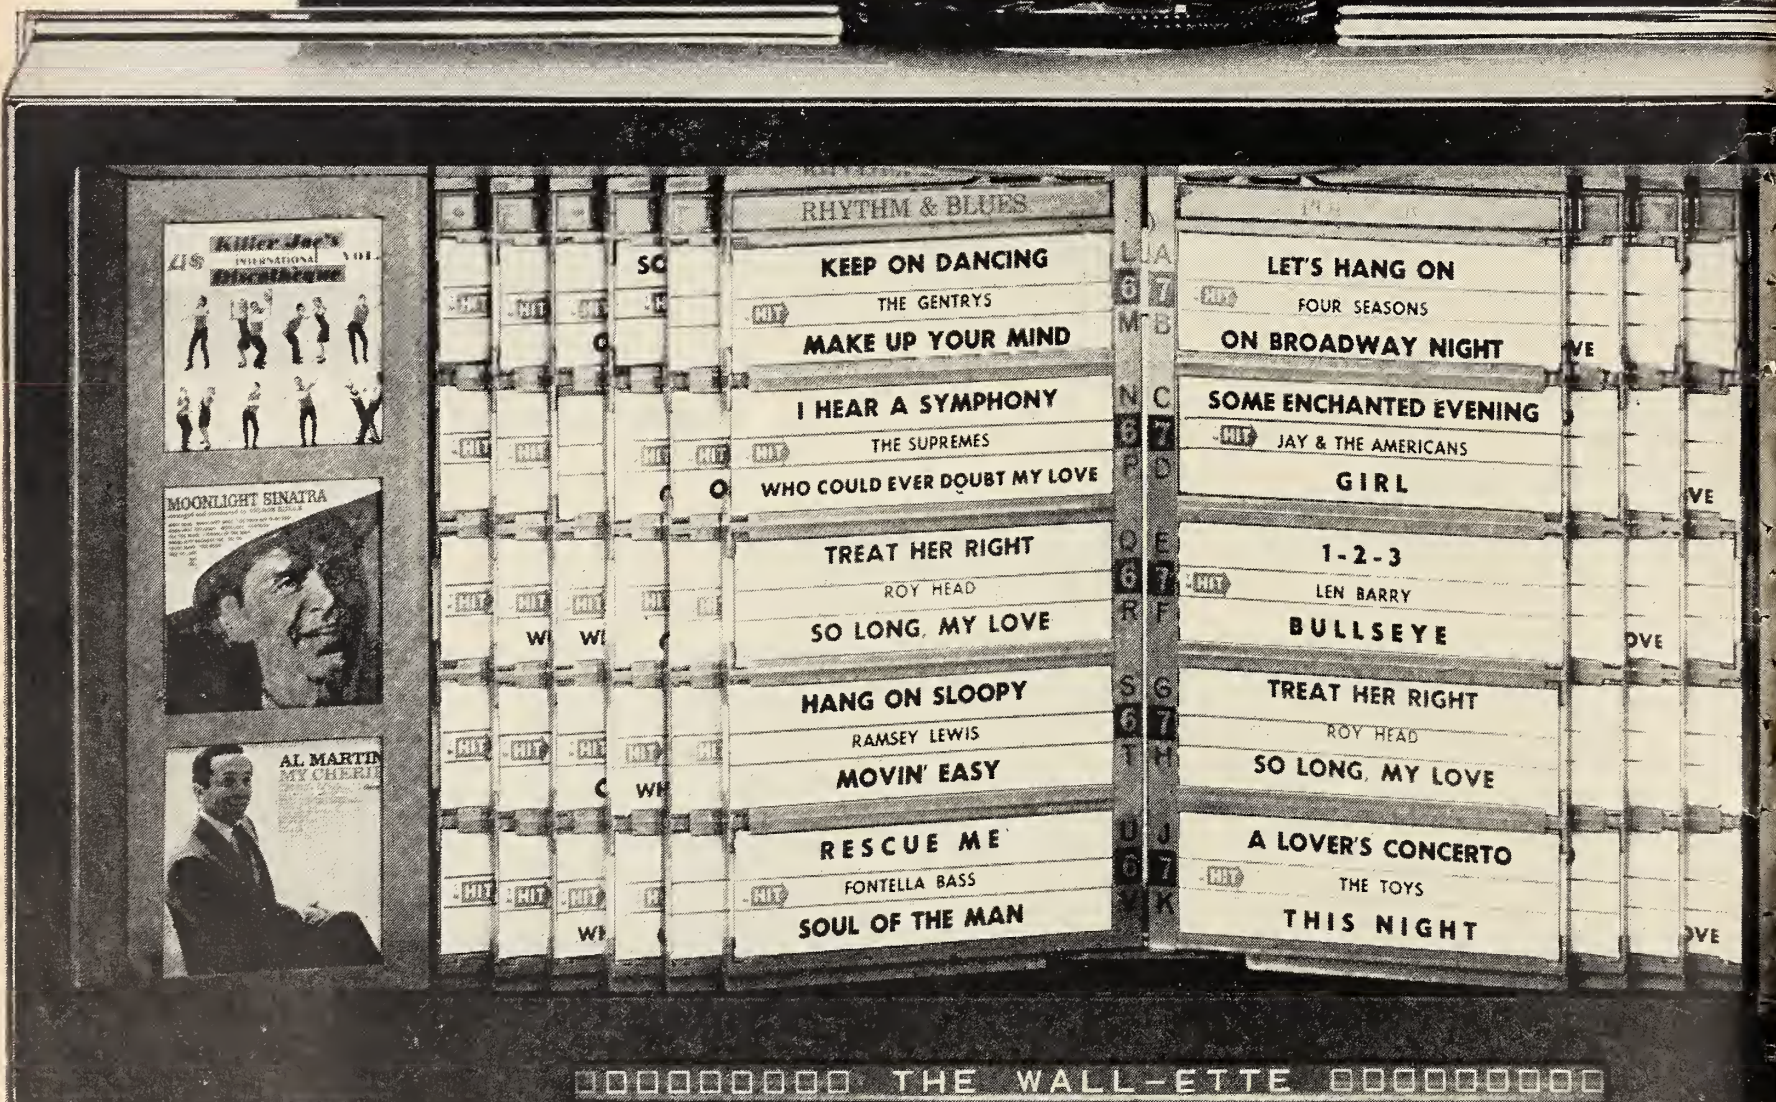 Killer Joe's
INTERNATIONAL
Discotheque
VOL.
MOONLIGHT SINATRA
AL MARTIN
MY CHERI
RHYTHM & BLUES
KEEP ON DANCING
THE GENTRYS
HIT
MAKE UP YOUR MIND
I HEAR A SYMPHONY
THE SUPREMES
HIT
WHO COULD EVER DOUBT MY LOVE
TREAT HER RIGHT
ROY HEAD
SO LONG, MY LOVE
HANG ON SLOOPY
RAMSEY LEWIS
MOVIN' EASY
RESCUE ME
FONTELLA BASS
HIT
SOUL OF THE MAN
L A
6 7
M B
N C
6 7
P D
Q E
6 7
R F
S G
6 7
T H
U J
6 7
V K
LET'S HANG ON
HIT
FOUR SEASONS
ON BROADWAY NIGHT
SOME ENCHANTED EVENING
HIT
JAY & THE AMERICANS
GIRL
1-2-3
HIT
LEN BARRY
BULLSEYE
TREAT HER RIGHT
ROY HEAD
SO LONG, MY LOVE
A LOVER'S CONCERTO
HIT
THE TOYS
THIS NIGHT
THE WALL-ETTE